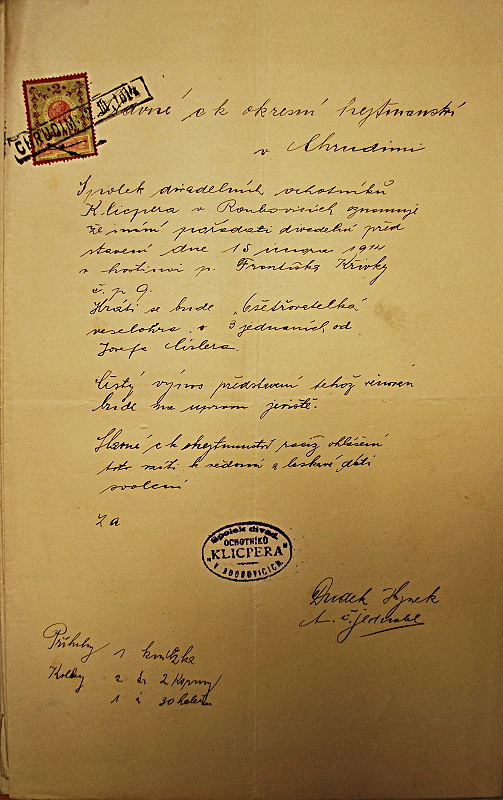 2
CHRUDIM
1914
c k okresní hejtmanství
v Chrudimi
Spolek divadelních ochotníků
Klicpera v Roubovicích oznamuje
že míní pořádati divadelní před
stavení dne 15 února 1914
v hostinci p. Františka Křivky
č. p. 9.
Hráti se bude „Ošetřovatelka"
veselohra o 3 jednáních od
Josefa
Čistý výnos představení tehož věnován
bude na upravu jeviště.
Slavné c k hejtmanství račiž ohlášení
toto vzíti k vědomí a laskavě dáti
svolení
Za
Spolek divad.
OCHOTNÍKŮ
„KLICPERA"
V
Dudek Hynek
t. č. jednatel
Přílohy 1 knížka
Kolky 2 à 2 Koruny
1 à 30 haléřů